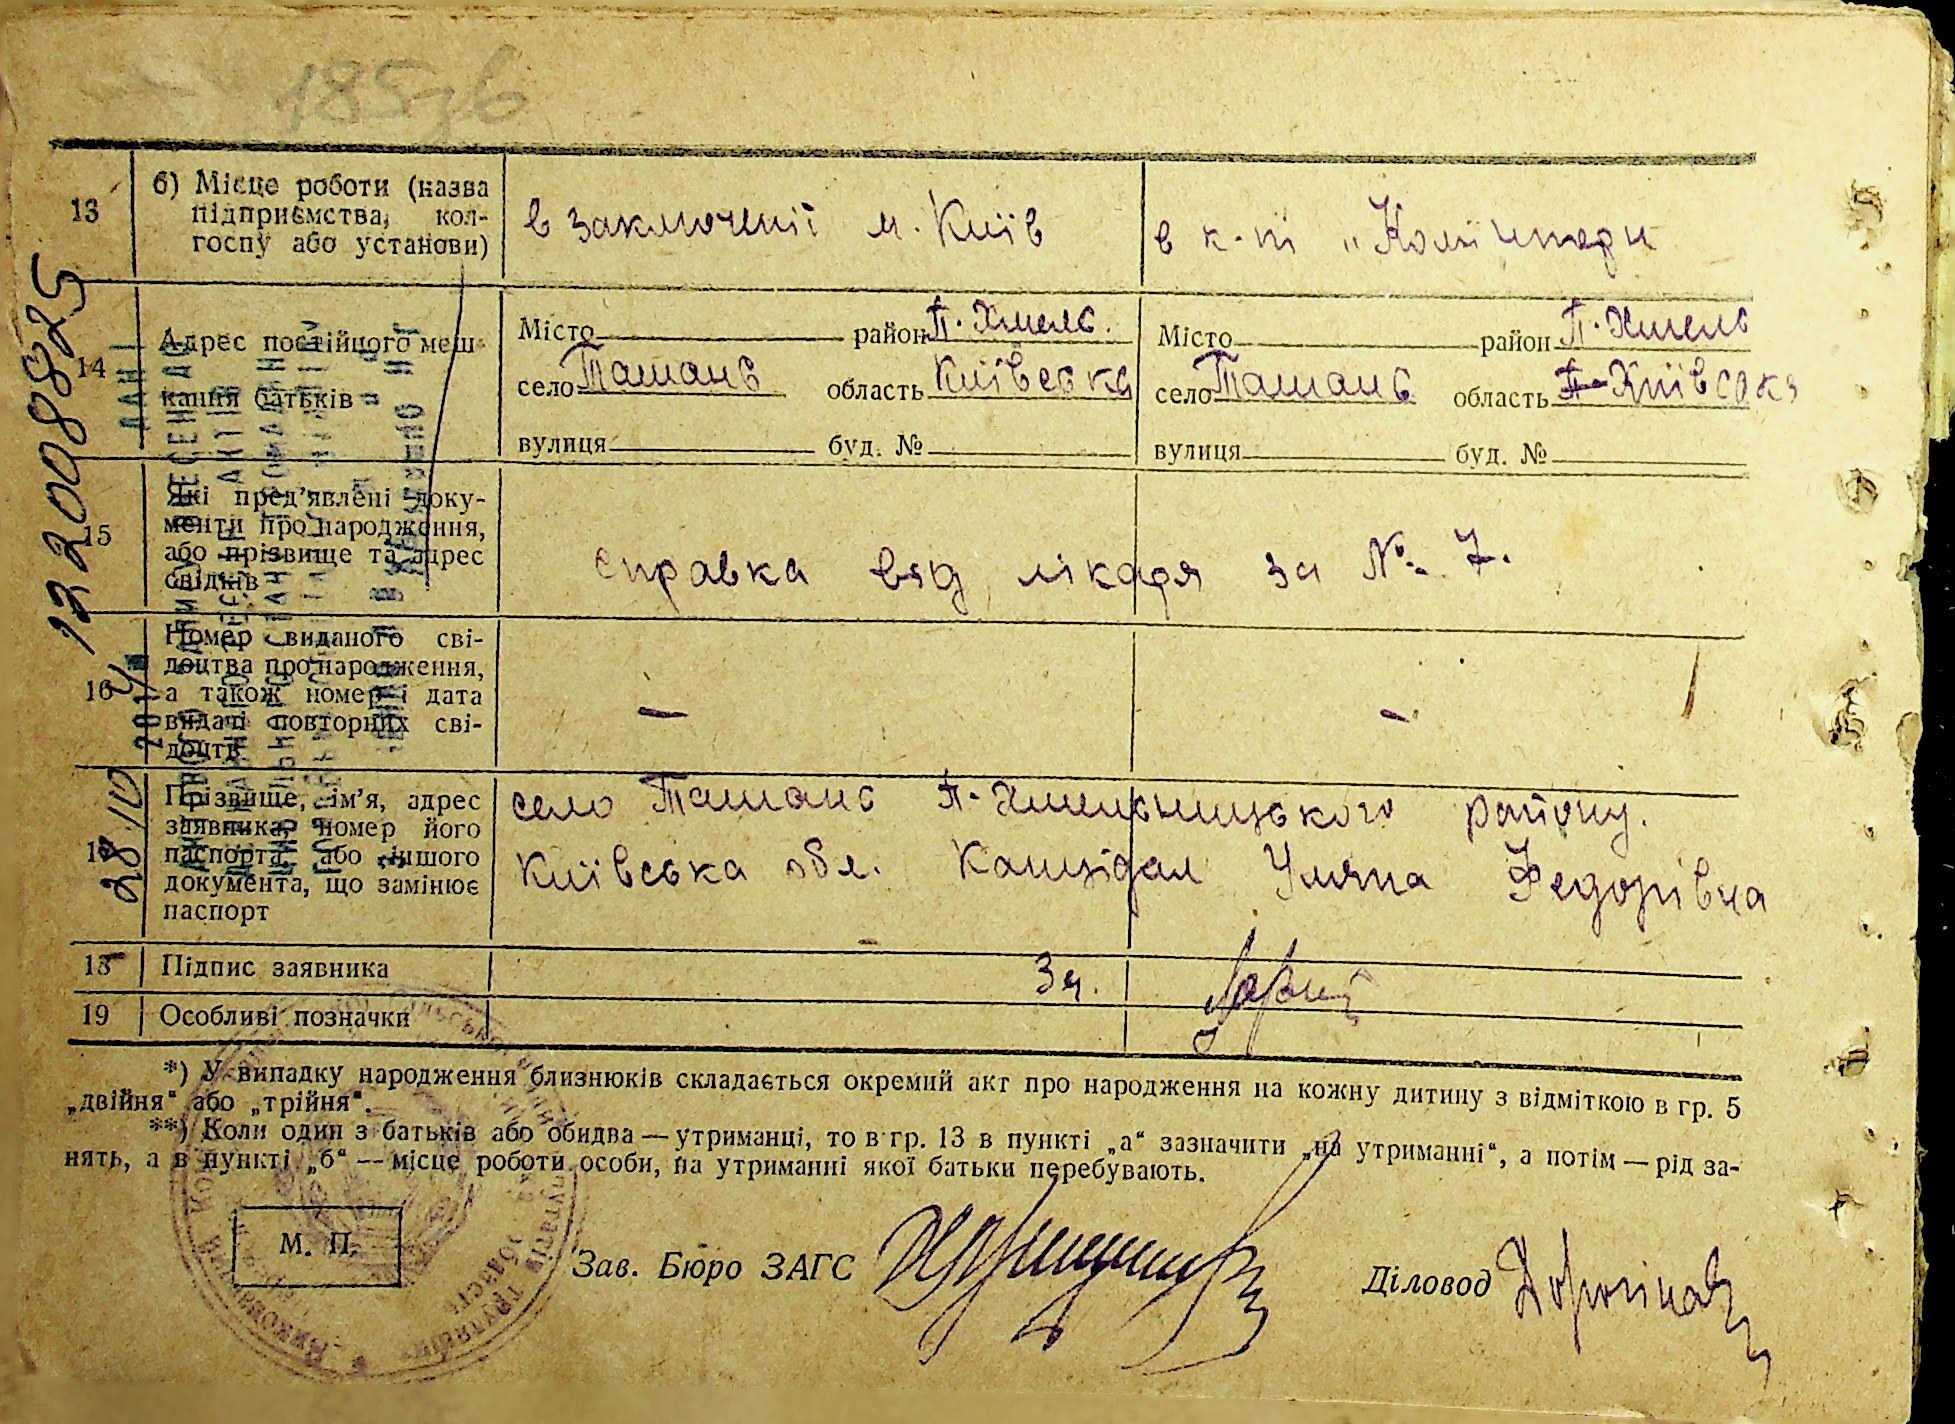 185
13
б) Місце роботи (назва
підприємства, кол-
госпу або установи)
в заключенії м. Київ
в к-ті „Комінтерн
14
Адрес постійного меш-
кання батьків
Місто район П. Хмель.
село Ташань область Київська
вулиця буд. №
Місто район П. Хмель
село Ташань область Київська
вулиця буд. №
15
Які пред'явлені доку-
менти про народження,
або прізвище та адрес
свідків
справка від лікаря за № 7.
16
Номер виданого сві-
доцтва про народження,
а також номер і дата
видачі повторних сві-
доцтв
—
—
Прізвище, ім'я, адрес
заявника, номер його
паспорта, або іншого
документа, що замінює
паспорт
село Ташань П-Хмельницького району.
Київська обл. Уляна Федорівна
Підпис заявника
19
Особливі позначки
*) У випадку народження близнюків складається окремий акт про народження на кожну дитину з відміткою в гр. 5
„двійня“ або „трійня“.
**) Коли один з батьків або обидва — утриманці, то в гр. 13 в пункті „а“ зазначити „на утриманні“, а потім — рід за-
нять, а в пункті „б“ — місце роботи особи, на утриманні якої батьки перебувають.
М. П.
Зав. Бюро ЗАГС
Діловод
122008825
28.10